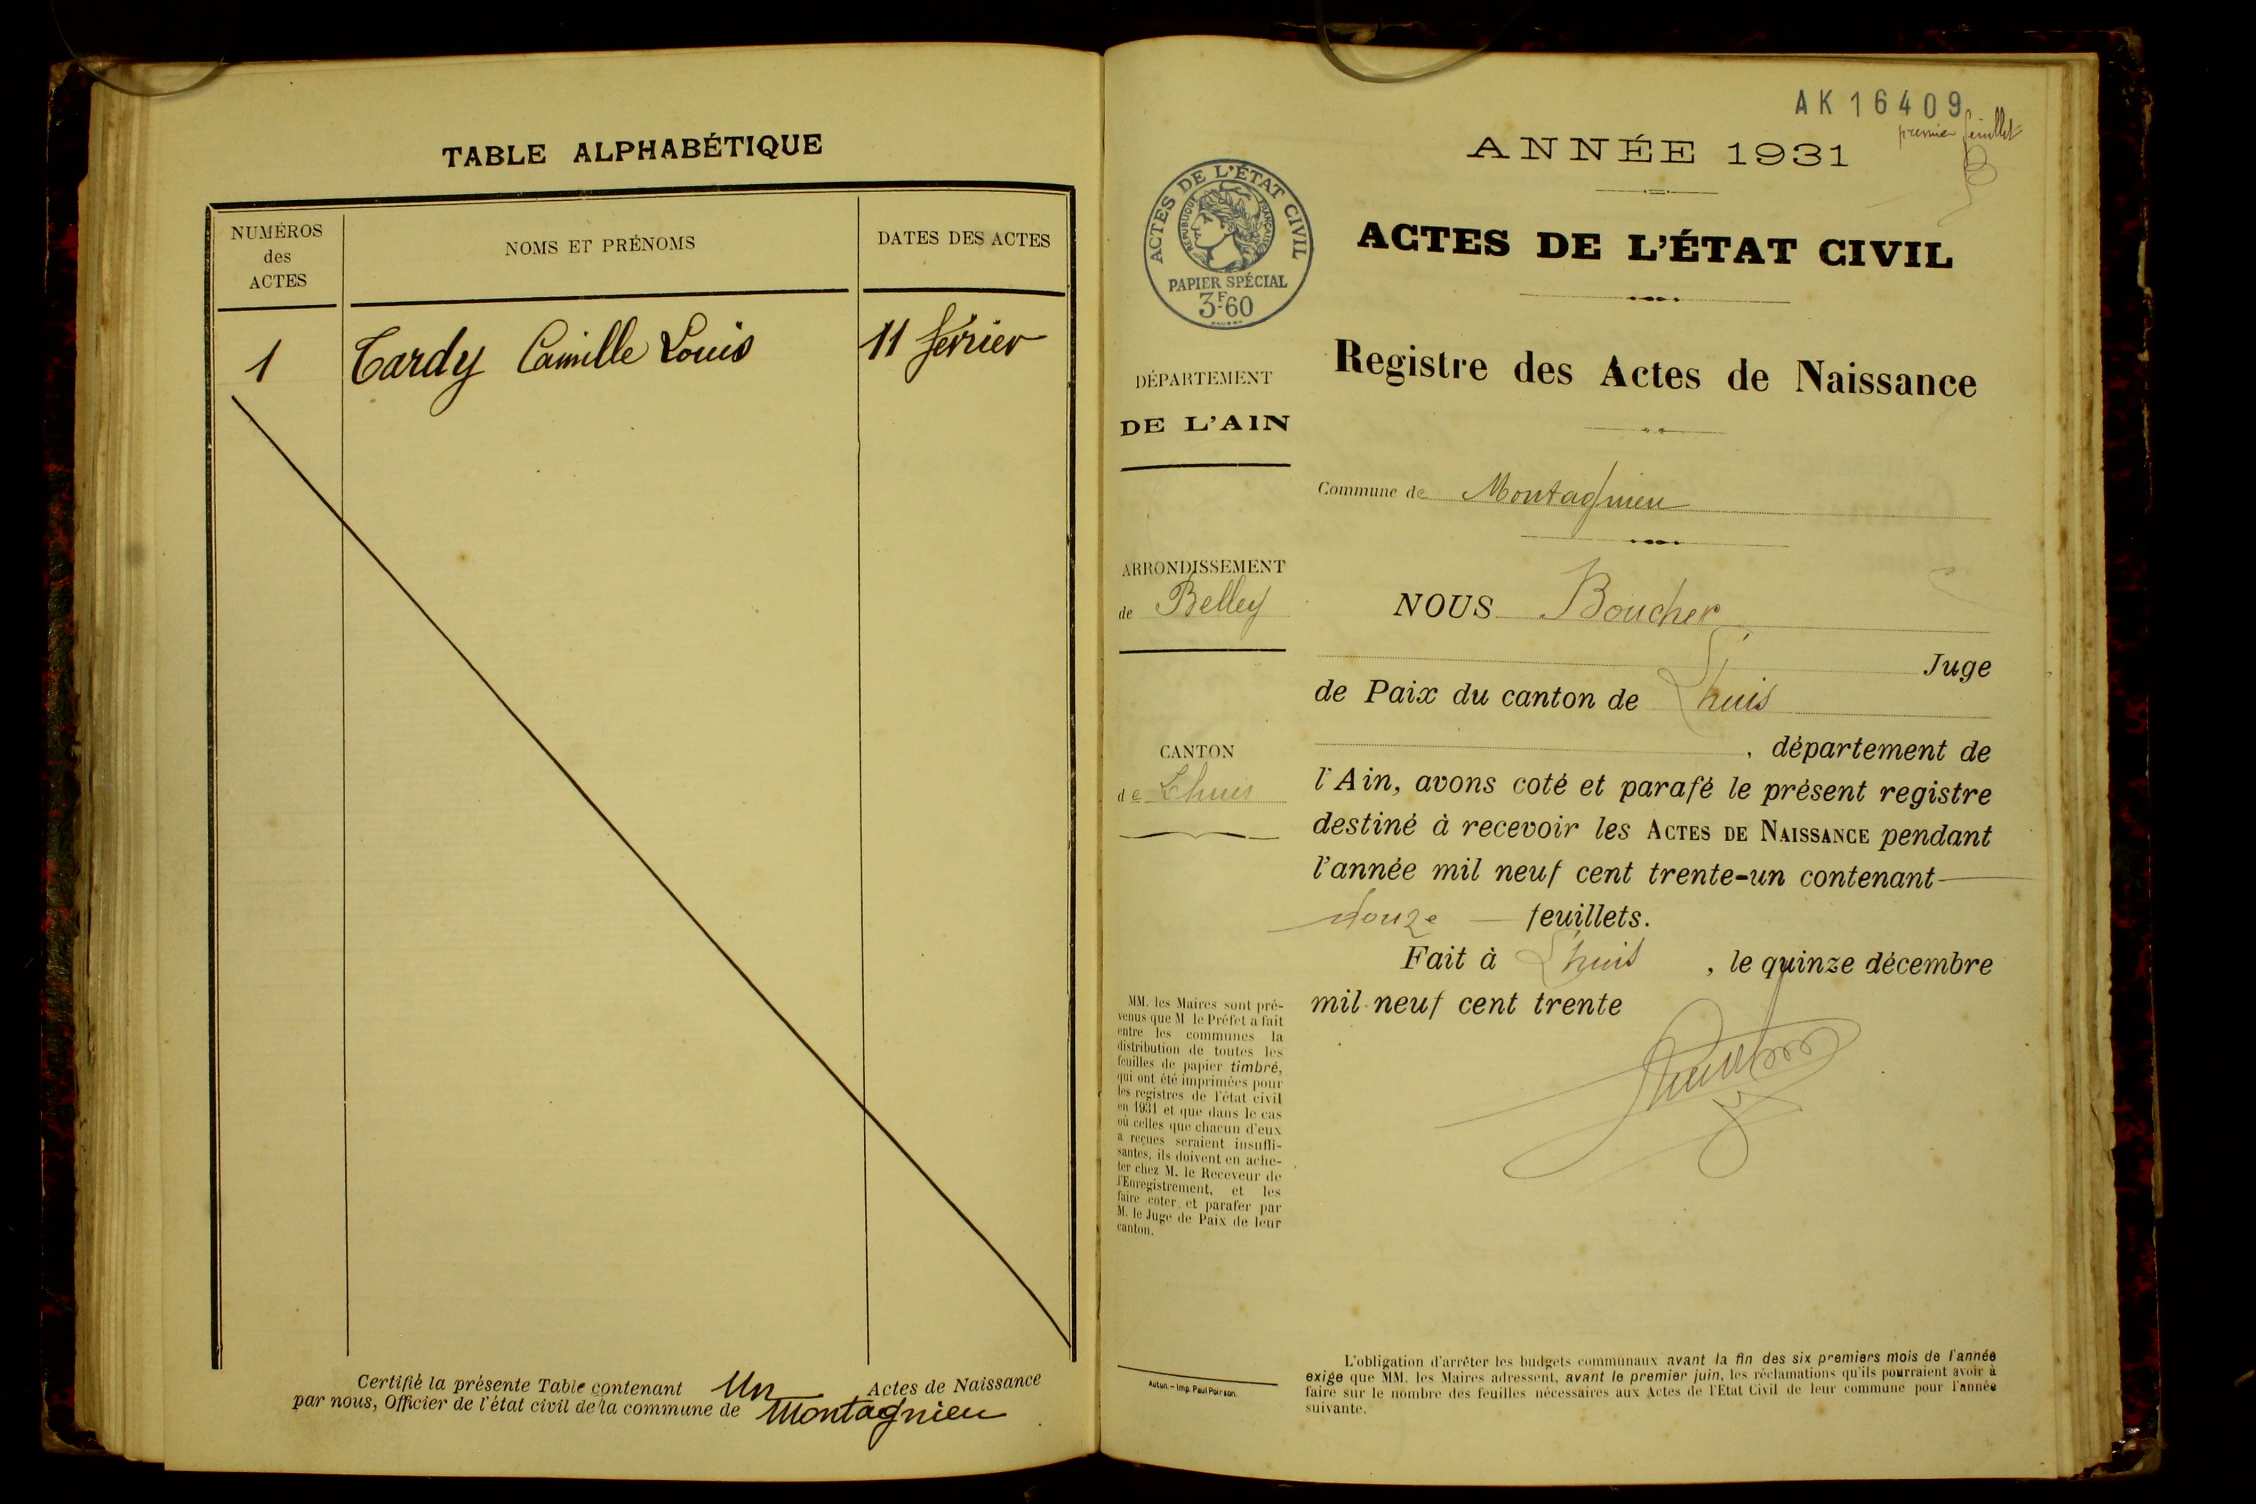 TABLE ALPHABÉTIQUE
NUMÉROS
des
ACTES
NOMS ET PRÉNOMS
DATES DES ACTES
1 Tardy Camille Louis 11 février
Certifié la présente Table contenant Un Actes de Naissance
par nous, Officier de l'état civil de la commune de Montagnieu
AK 16409
premier feuillet
ANNÉE 1931
ACTES DE L'ÉTAT CIVIL
RÉPUBLIQUE FRANÇAISE
PAPIER SPÉCIAL
3F60
ACTES DE L'ÉTAT CIVIL
Registre des Actes de Naissance
DÉPARTEMENT
DE L'AIN
Commune de Montagnieu
ARRONDISSEMENT
de Belley
CANTON
de Lhuis
NOUS Boucher
Juge
de Paix du canton de Lhuis
, département de
l'Ain, avons coté et parafé le présent registre
destiné à recevoir les ACTES DE NAISSANCE pendant
l'année mil neuf cent trente-un contenant
douze feuillets.
Fait à Lhuis , le quinze décembre
mil neuf cent trente
MM. les Maires sont pré-
venus que M le Préfet a fait
entre les communes la
distribution de toutes les
feuilles de papier timbré,
qui ont été imprimées pour
les registres de l'état civil
en 1931 et que dans le cas
où celles que chacun d'eux
a reçues seraient insuffi-
santes, ils doivent en ache-
ter chez M. le Receveur de
l'Enregistrement, et les
faire coter et parafer par
M. le Juge de Paix de leur
canton.
Autun. – Imp. Paul Poirson.
L'obligation d'arrêter les budgets communaux avant la fin des six premiers mois de l'année
exige que MM. les Maires adressent, avant le premier juin, les réclamations qu'ils pourraient avoir à
faire sur le nombre des feuilles nécessaires aux Actes de l'Etat Civil de leur commune pour l'année
suivante.